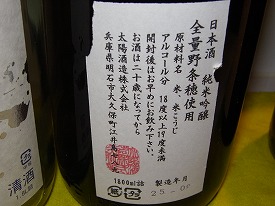 日本酒 純米吟醸
全量野条穂使用
原材料名 米、米こうじ
アルコール分 18度以上19度未満
開封後はお早めにお飲み下さい。
お酒は二十歳になってから
太陽酒造株式会社
兵庫県明石市大久保町江井島
1800ml詰
製造年月
清酒
1.8L詰